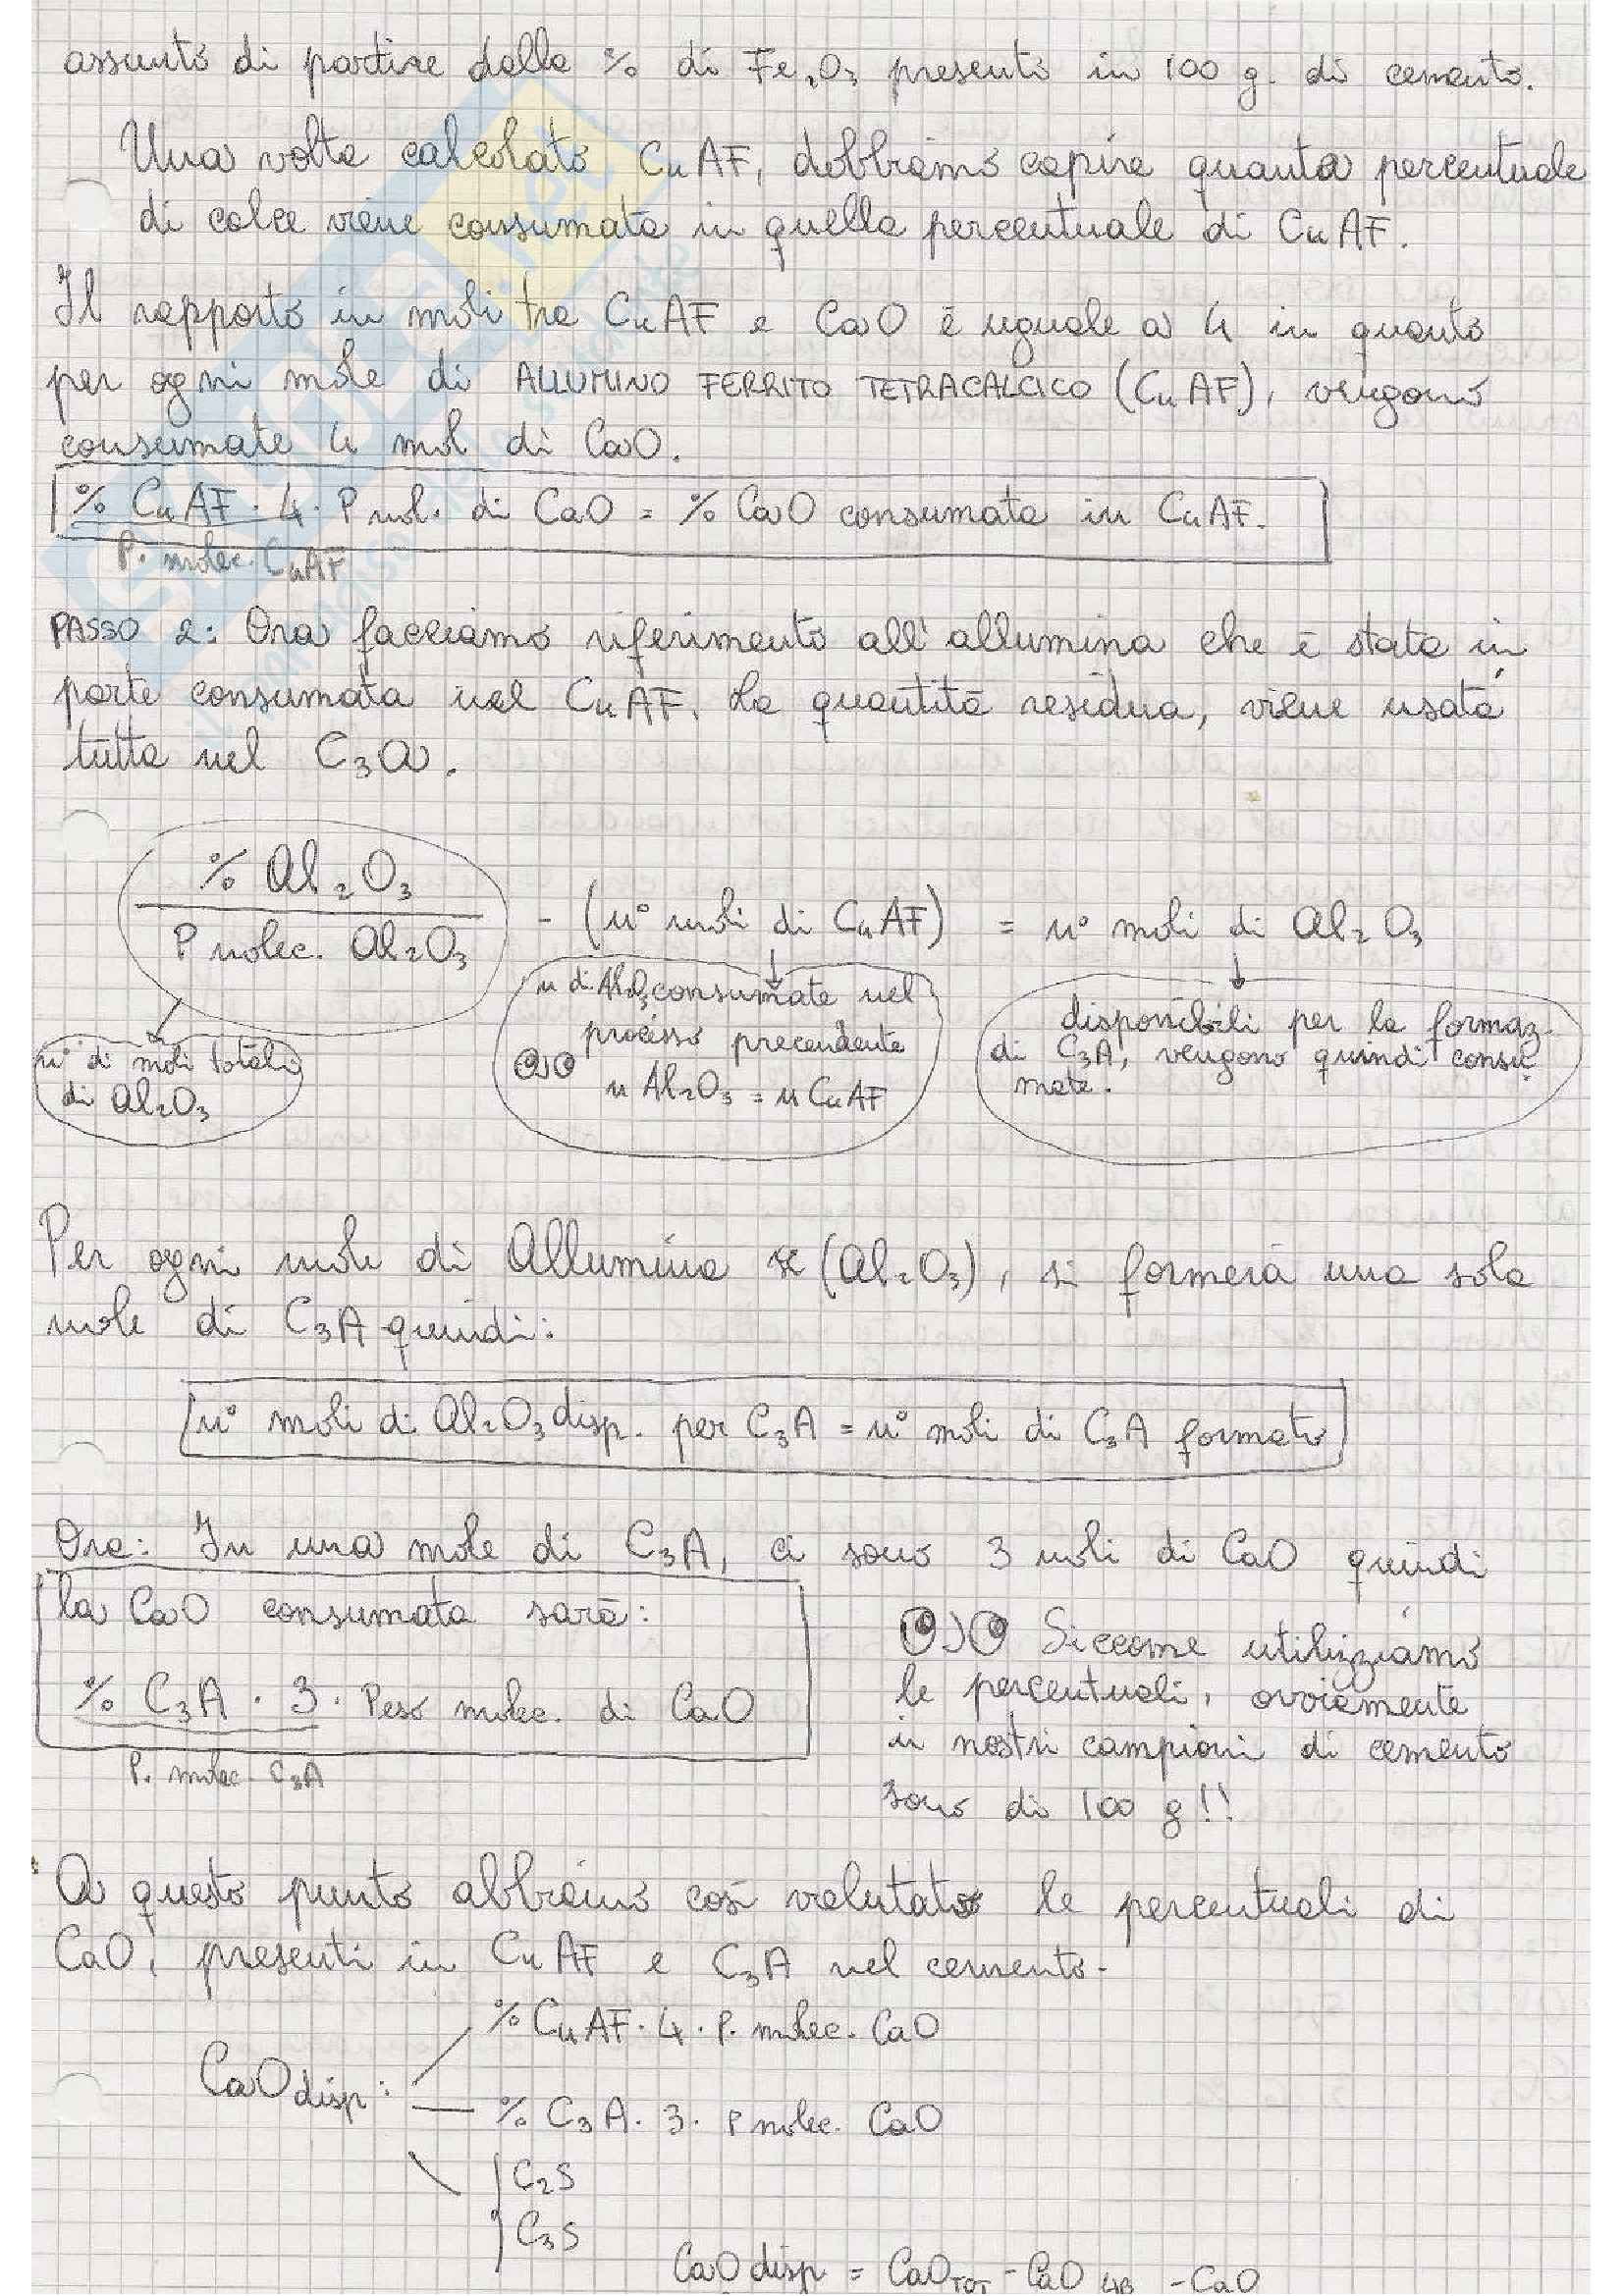 assunto di partire dalla % di Fe₂O₃ presenti in 100 g. di cemento.
Una volta calcolato C₄AF, dobbiamo capire quanta percentuale
di calce viene consumata in quella percentuale di C₄AF.
Il rapporto in moli tra C₄AF e CaO è uguale a 4 in quanto
per ogni mole di ALLUMINO FERRITO TETRACALCICO (C₄AF), vengono
consumate 4 mol di CaO.
% C₄AF · 4 · P mol. di CaO = % CaO consumata in C₄AF.
P. molec. C₄AF
PASSO 2: Ora facciamo riferimento all'allumina che è stata in
parte consumata nel C₄AF. La quantità residua, viene usata
tutta nel C₃A.
% Al₂O₃
P molec. Al₂O₃
- (n° moli di C₄AF) = n° moli di Al₂O₃
n° di moli totali
di Al₂O₃
n di Al₂O₃ consumate nel
processo precendente
n Al₂O₃ = n C₄AF
disponibili per la formaz.
di C₃A, vengono quindi consu
mate.
Per ogni mole di Allumina (Al₂O₃), si formerà una sola
mole di C₃A quindi:
n° moli di Al₂O₃ disp. per C₃A = n° moli di C₃A formato
Ora: In una mole di C₃A, ci sono 3 moli di CaO quindi
la CaO consumata sarà:
% C₃A · 3 · Peso molec. di CaO
P. molec. C₃A
Siccome utilizziamo
le percentuali, ovviamente
i nostri campioni di cemento
sono di 100 g!!
A questo punto abbiamo così valutato le percentuali di
CaO, presenti in C₄AF e C₃A nel cemento.
CaO disp:
% C₄AF · 4 · P. molec. CaO
% C₃A · 3 · P molec. CaO
C₂S
C₃S
CaO disp = CaO TOT - CaO - CaO